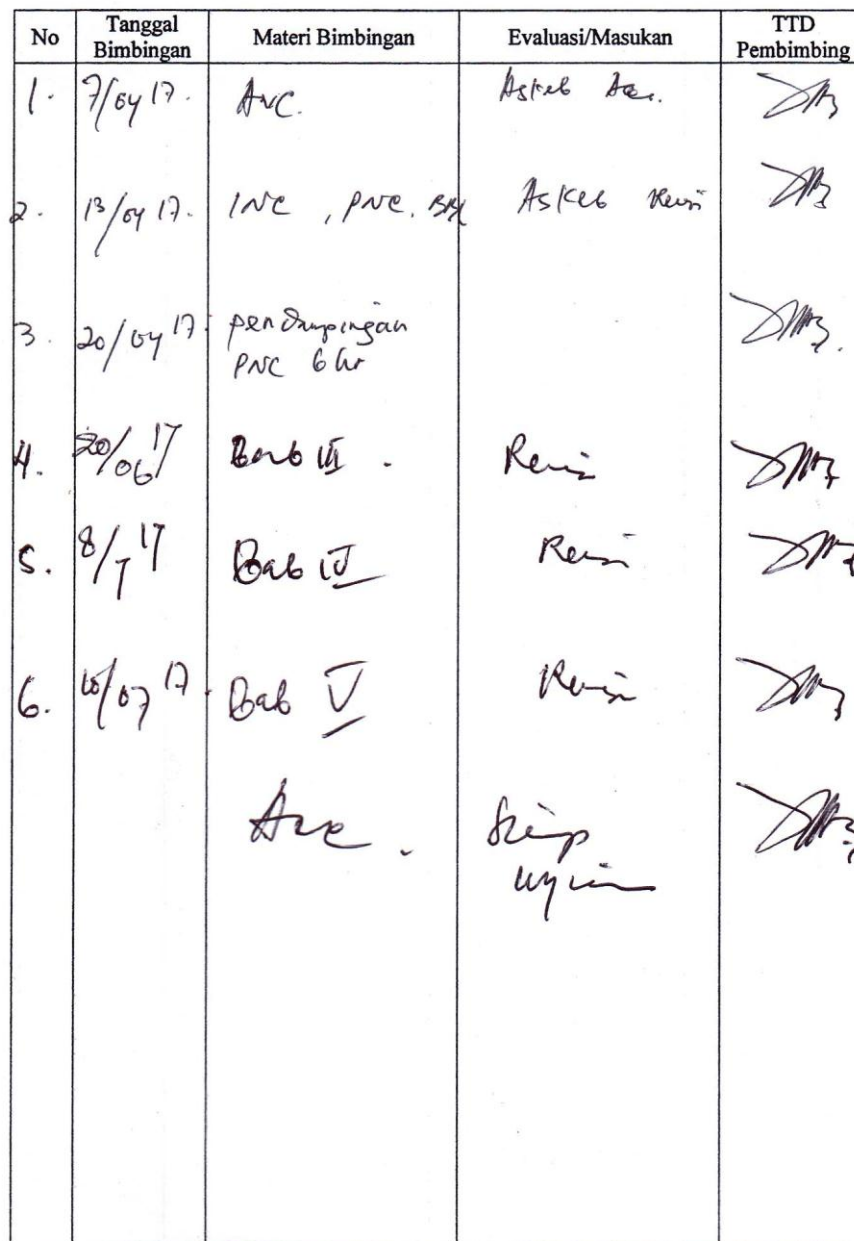 No Tanggal Bimbingan Materi Bimbingan Evaluasi/Masukan TTD Pembimbing
1. 7/04 17. ANC. Askeb Acc.
2. 13/04 17. INC, PNC, BBL Askeb Revisi
3. 20/04 17. pendampingan
PNC 6 hr
4. 20/06 17 Bab III. Revisi
5. 8/7 17 Bab IV Revisi
6. 10/07 17. Bab V Revisi
Acc. Siap
Ujian